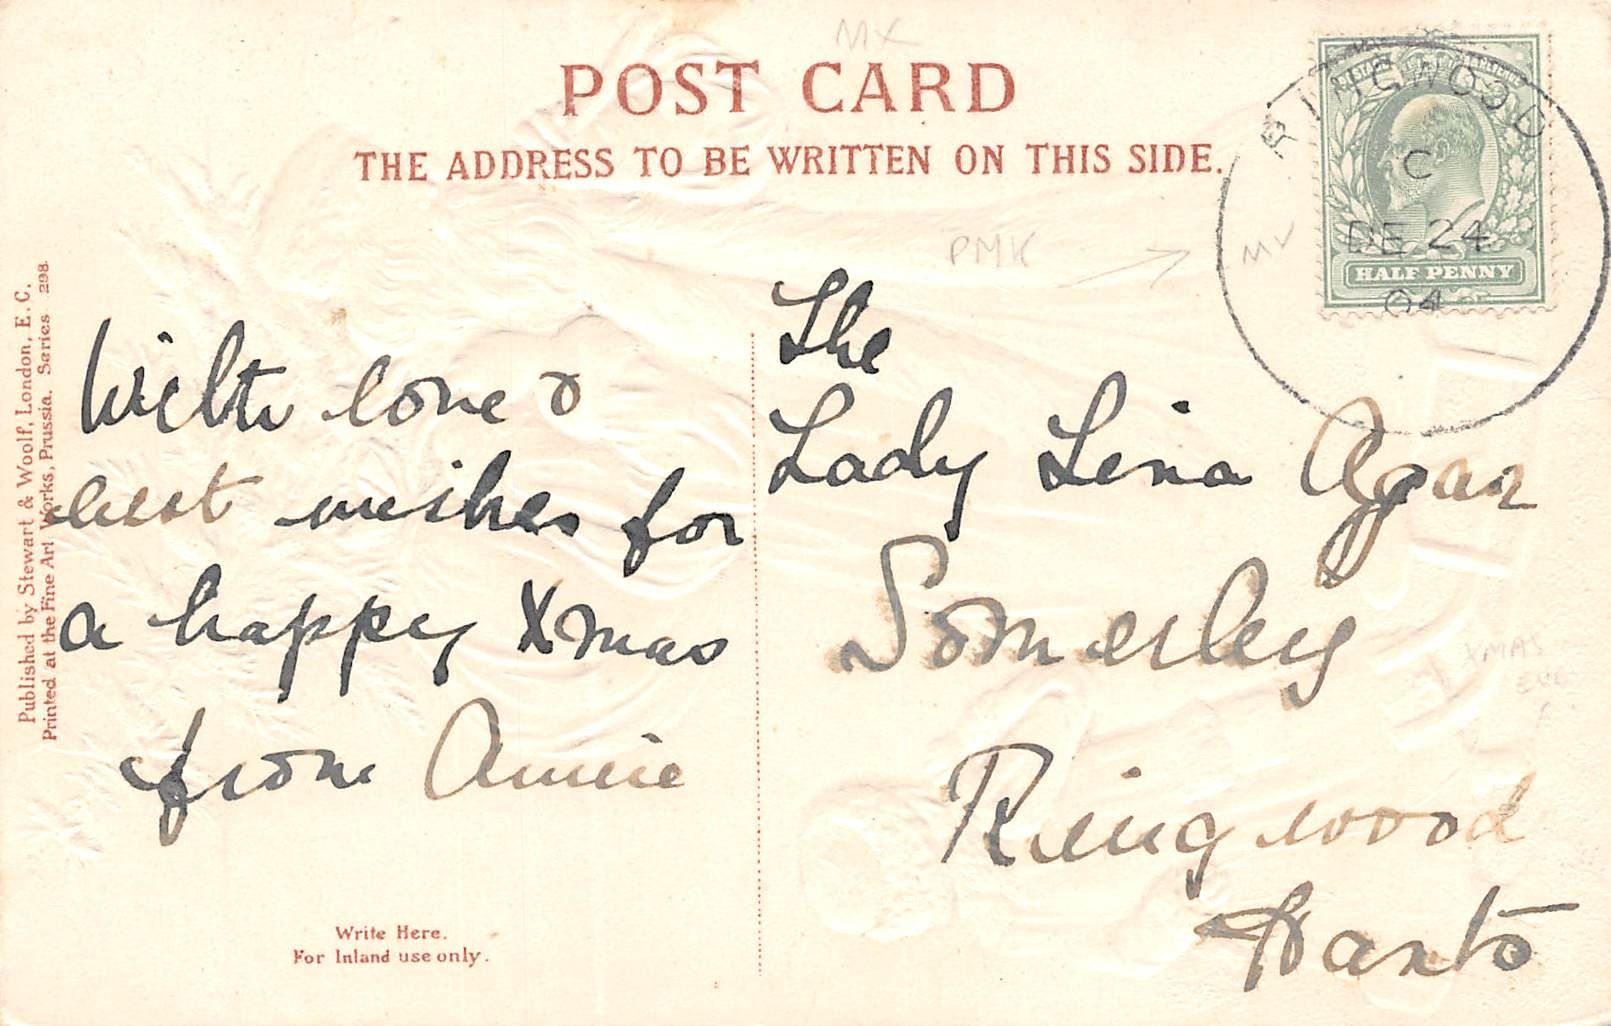 MX
POST CARD
THE ADDRESS TO BE WRITTEN ON THIS SIDE.
RINGWOOD
C
DE 24
04
HALF PENNY
PMK
MX
Published by Stewart & Woolf, London, E. C.
Printed at the Fine Art Works, Prussia. Series 298.
With love &
best wishes for
a happy Xmas
from Annie
The
Lady Lena Agar
Somerley
Ringwood
Hants
XMAS
EVE
Write Here.
For Inland use only.